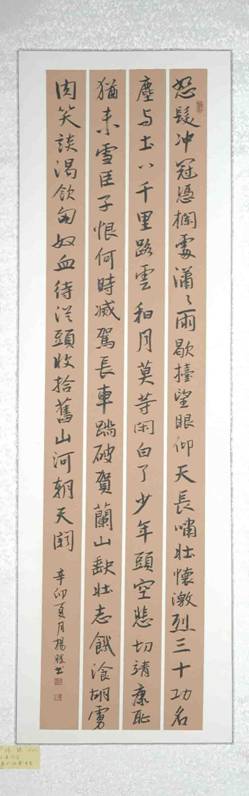 怒髮冲冠憑欄處瀟〻雨歇擡望眼仰天長嘯壯懷激烈三十功名
塵与土八千里路雲和月莫等闲白了少年頭空悲切靖康恥
猶未雪臣子恨何時滅駕長車踏破賀蘭山缺壯志餓飡胡虜
肉笑談渴飲匈奴血待從頭收拾舊山河朝天闕
辛卯夏月楊勝书